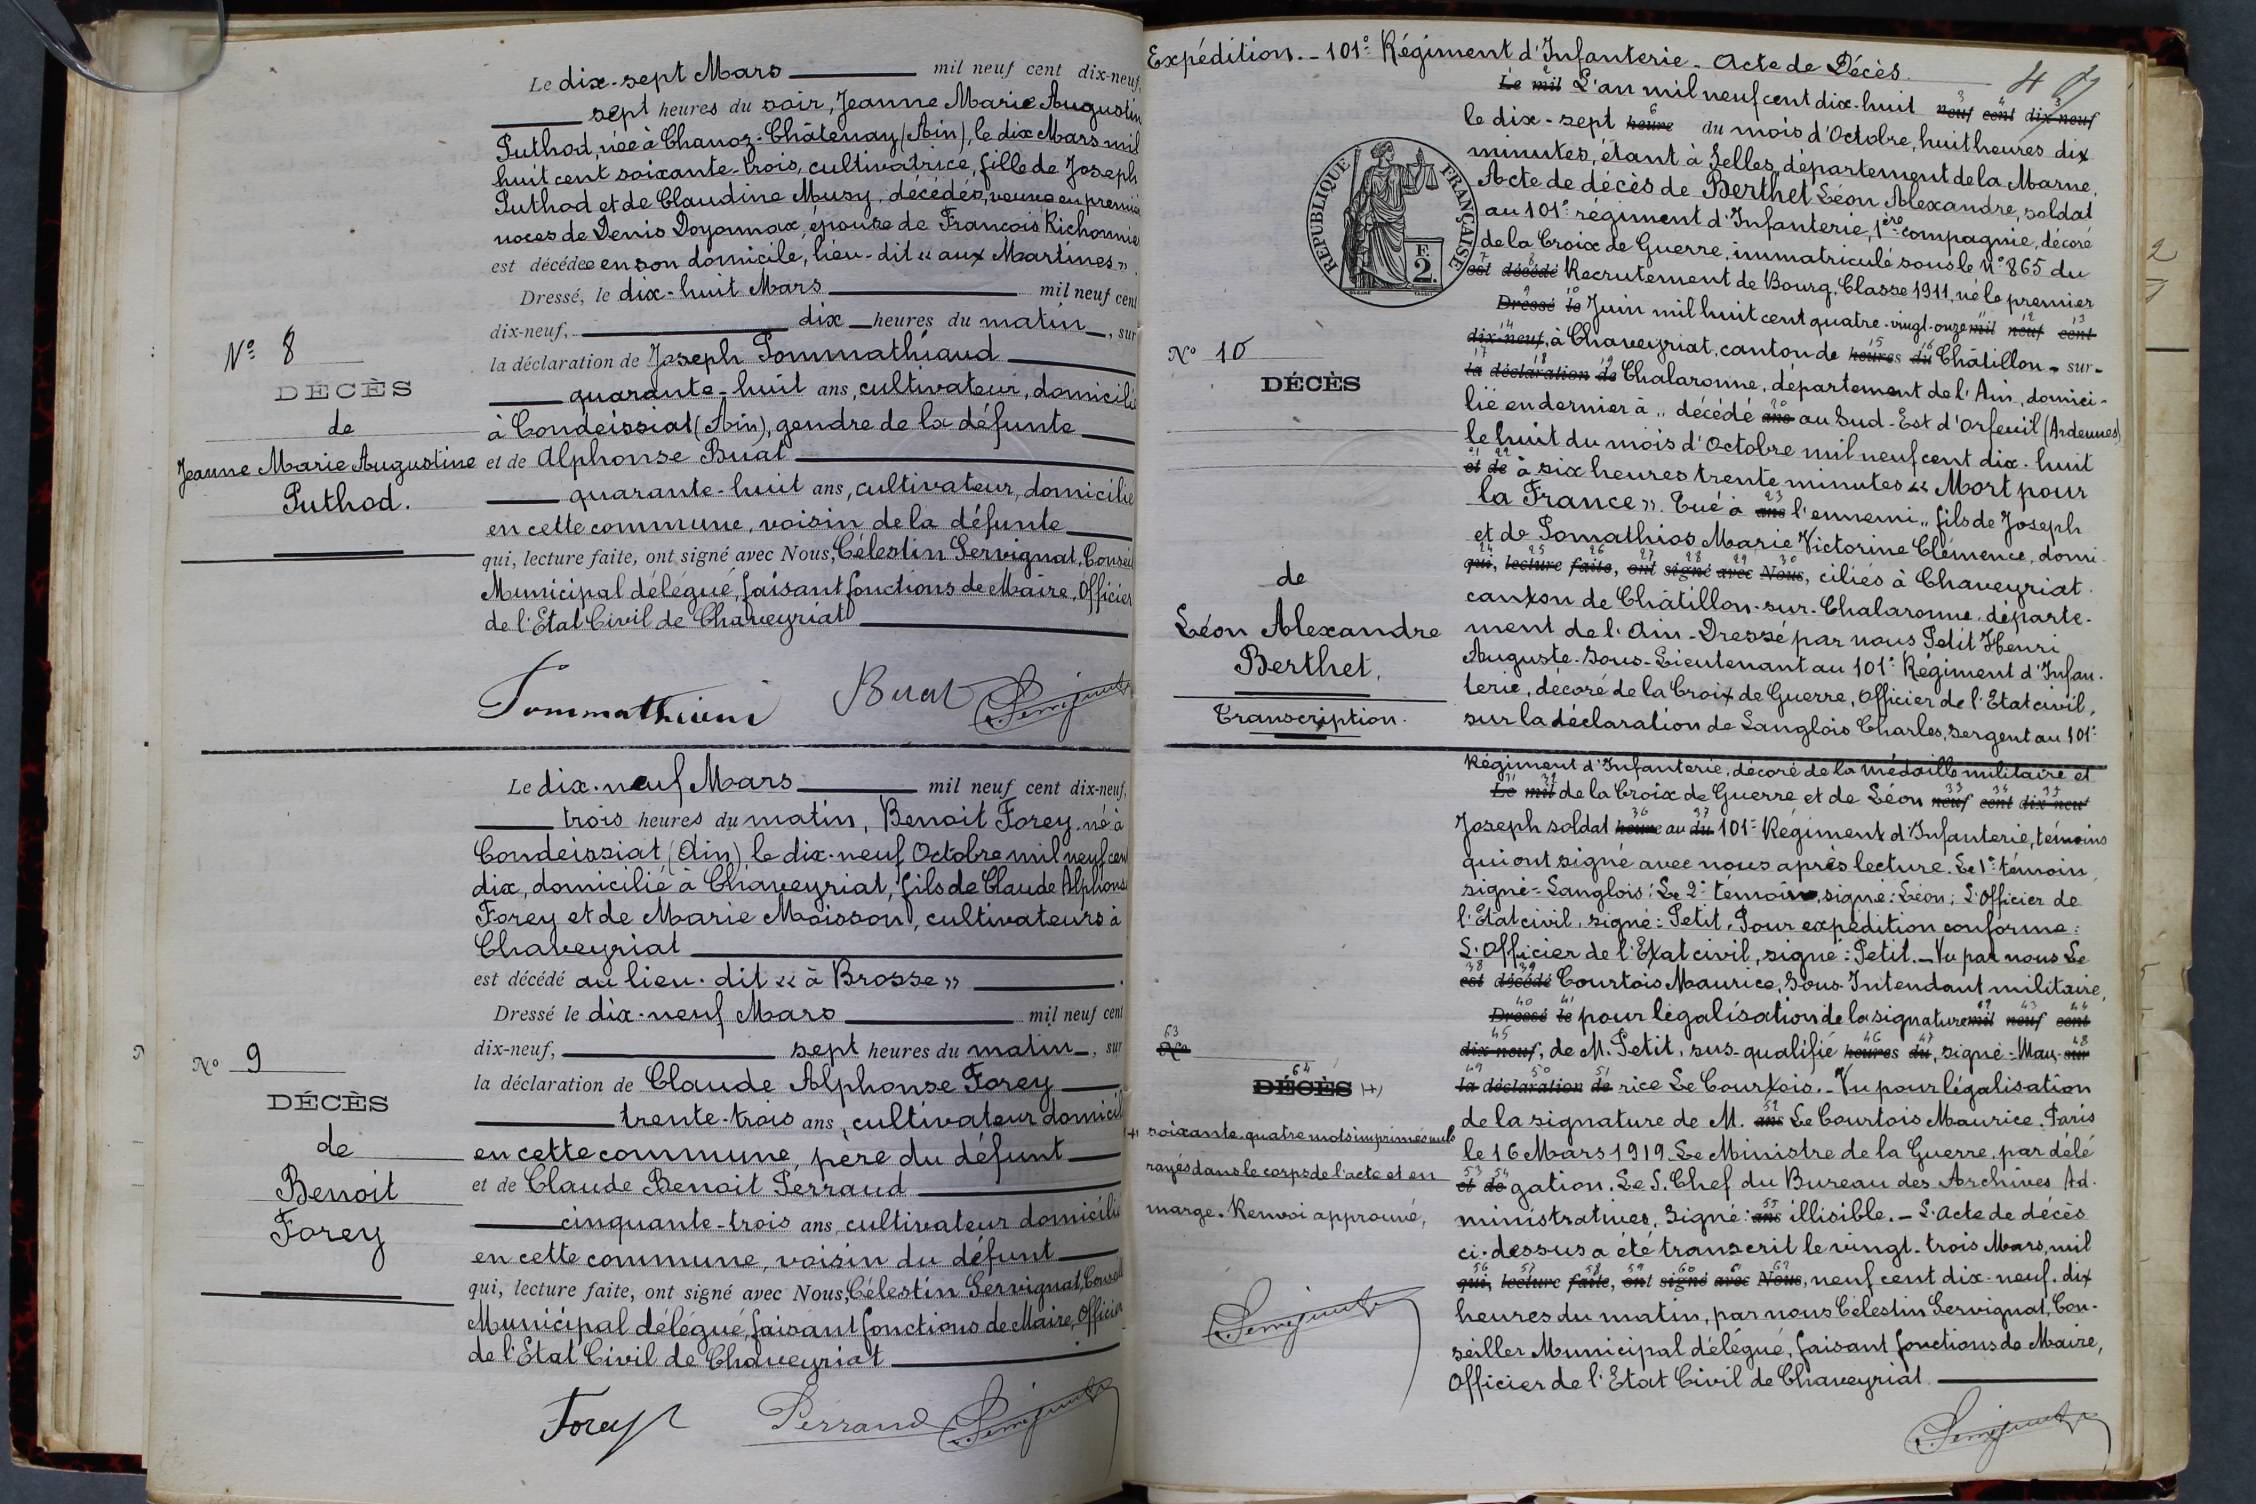 Le dix-sept Mars mil neuf cent dix-neuf,
sept heures du soir, Jeanne Marie Augustin
Puthod, née à Chanoz-Châtenay (Ain), le dix Mars mil
huit cent soixante-trois, cultivatrice, fille de Joseph
Puthod et de Claudine Musy, décédés, veuve en premiè
noces de Denis Doyonnax, épouse de François Richonnie
est décédée en son domicile, lieu-dit « aux Martines ».
Dressé, le dix-huit Mars mil neuf cent
dix-neuf, dix heures du matin, sur
la déclaration de Joseph Pommathiaud
quarante-huit ans, cultivateur, domicilié
à Condeissiat (Ain), gendre de la défunte
et de Alphonse Buat
quarante-huit ans, cultivateur, domicilié
en cette commune, voisin de la défunte
qui, lecture faite, ont signé avec Nous, Célestin Servignat, Conseil
Municipal délégué, faisant fonctions de Maire, Officier
de l'Etat Civil de Chaveyriat
Buat
N° 8
DÉCÈS
de
Jeanne Marie Augustine
Puthod.
Le dix-neuf Mars mil neuf cent dix-neuf,
trois heures du matin, Benoit Forey, né à
Condeissiat (Ain) le dix-neuf Octobre mil neuf cen
dix, domicilié à Chaveyriat, fils de Claude Alphons
Forey et de Marie Moisson, cultivateurs à
Chaveyriat
est décédé au lieu-dit « à Brosse »
Dressé le dix-neuf Mars mil neuf cent
dix-neuf, sept heures du matin, sur
la déclaration de Claude Alphonse Forey
trente-trois ans, cultivateur domicil
en cette commune, père du défunt
et de Claude Benoit Perraud
cinquante-trois ans, cultivateur domicilié
en cette commune, voisin du défunt
qui, lecture faite, ont signé avec Nous, Célestin Servignat, Conseil
Municipal délégué, faisant fonctions de Maire, Officier
de l'Etat Civil de Chaveyriat
Forey Perraud
N° 9
DÉCÈS
de
Benoit
Forey
Expédition. - 101e Régiment d'Infanterie - Acte de Décès.
Le mil L'an mil neuf cent dix-huit neuf cent dix-neuf
le dix-sept heure du mois d'Octobre, huit heures dix
minutes, étant à Selles, département de la Marne,
Acte de décès de Berthet Léon Alexandre, soldat
au 101e régiment d'Infanterie, 1ère compagnie, décoré
de la Croix de Guerre, immatriculé sous le N° 865 du
est décédé Recrutement de Bourg, Classe 1911, né le premier
Dressé le Juin mil huit cent quatre-vingt-onze mil neuf cent
dix-neuf, à Chaveyriat, canton de heures du Châtillon-sur-
la déclaration de Chalaronne, département de l'Ain, domici-
lié en dernier à .. décédé ans au Sud-Est d'Orfeuil (Ardennes)
le huit du mois d'Octobre mil neuf cent dix-huit
et de à six heures trente minutes « Mort pour
la France ». Tué à ans l'ennemi .. fils de Joseph
et de Pomathios Marie Victorine Clémence, domi-
qui, lecture faite, ont signé avec Nous, ciliés à Chaveyriat
canton de Châtillon-sur-Chalaronne, départe-
ment de l'Ain - Dressé par nous Petit Henri
Auguste - Sous-Lieutenant au 101e Régiment d'Infan-
terie, décoré de la Croix de Guerre, Officier de l'Etat civil,
sur la déclaration de Langlois Charles, sergent au 101e
Régiment d'Infanterie, décoré de la Médaille militaire et
Le mil de la Croix de Guerre et de Léon neuf cent dix-neuf
Joseph soldat heure au du 101e Régiment d'Infanterie, témoins
qui ont signé avec nous après lecture. Le 1e témoin,
signé = Langlois; Le 2e témoin, signé: Léon; L'Officier de
l'Etat civil, signé = Petit. Pour expédition conforme:
L'Officier de l'Etat civil, signé: Petit. - Vu par nous Le
est décédé Courtois Maurice, Sous-Intendant militaire,
Dressé le pour légalisation de la signature mil neuf cent
dix-neuf, de M. Petit, sus-qualifié heures du, signé - Mau- sur
la déclaration de rice Le Courtois. - Vu pour légalisation
de la signature de M. ans Le Courtois Maurice. Paris
le 16 Mars 1919. Le Ministre de la Guerre, par délé
et de gation. Le S. Chef du Bureau des Archives Ad-
ministratives, Signé: ans illisible. - L'acte de décès
ci-dessus a été transcrit le vingt-trois Mars, mil
qui, lecture faite, ont signé avec Nous, neuf cent dix-neuf, dix
heures du matin, par nous Célestin Servignat, Con-
seiller Municipal délégué, faisant fonctions de Maire,
Officier de l'Etat Civil de Chaveyriat
RÉPUBLIQUE FRANÇAISE
F.
2.
N° 10
DÉCÈS
de
Léon Alexandre
Berthet.
Transcription.
N°
DÉCÈS (+)
(+) soixante-quatre mots imprimés nuls
rayés dans le corps de l'acte et en
marge. Renvoi approuvé,